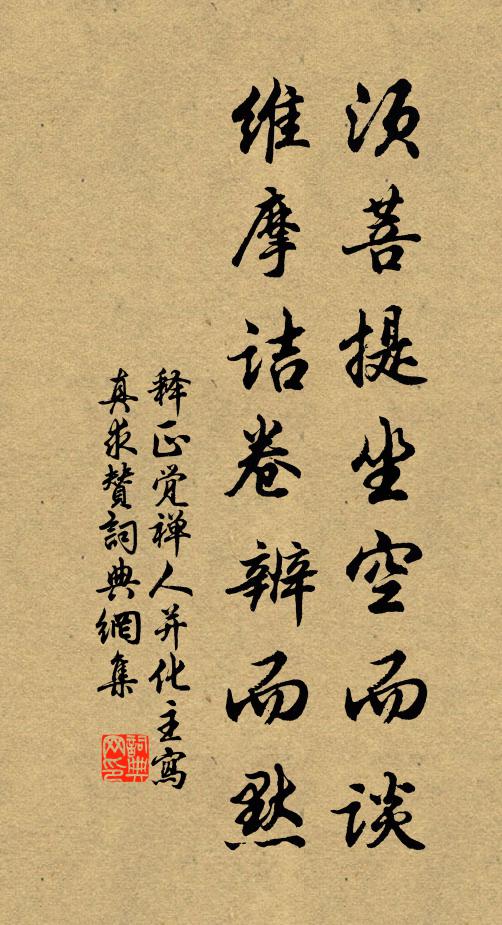 须菩提坐空而谈
维摩诘卷辨而默
释正觉禅人并化主寫
真求赞詞典網集
詞典
网印